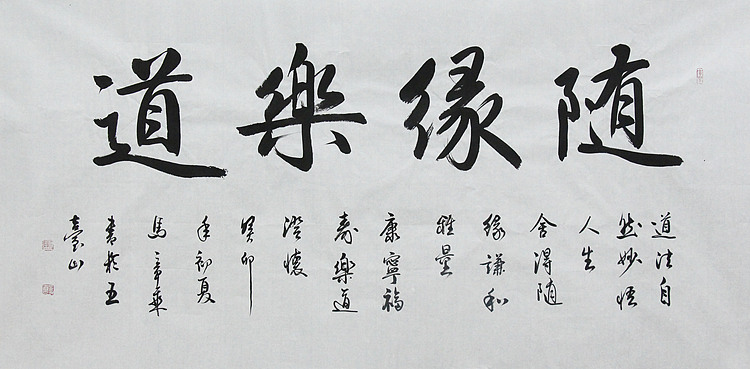 随缘樂道
道法自
然妙悟
人生
舍得随
缘謙和
雅量
康寧福
壽樂道
澄懷
癸卯
年初夏
馬章乘
書於五
臺山